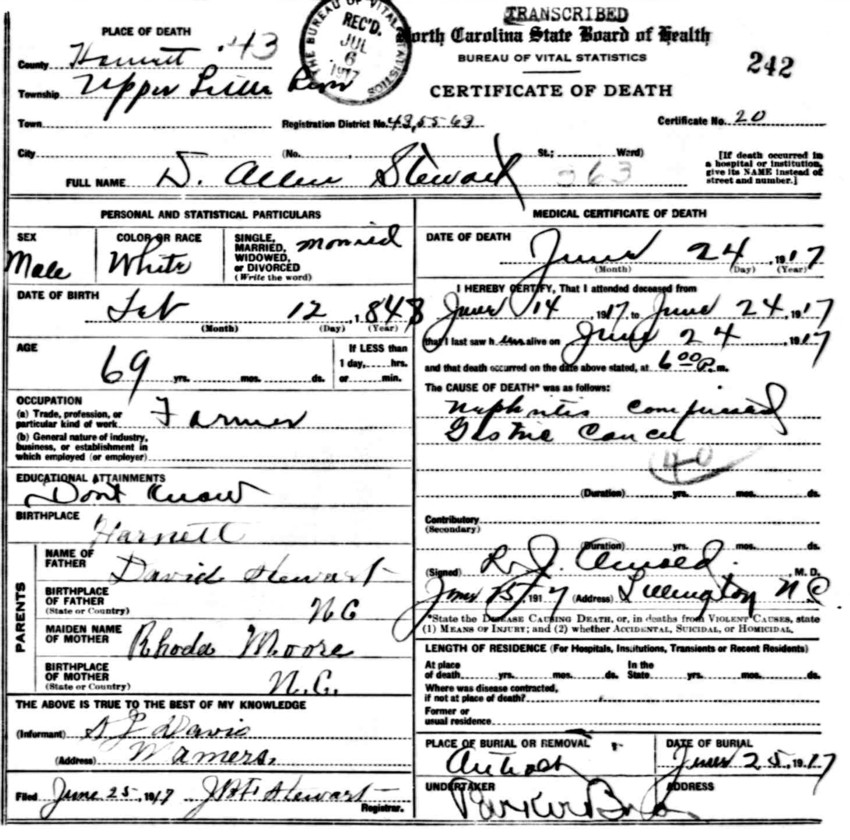 TRANSCRIBED
PLACE OF DEATH
North Carolina State Board of Health
BUREAU OF VITAL STATISTICS
CERTIFICATE OF DEATH
242
THE BUREAU OF VITAL STATISTICS
REC'D.
JUL
6
1917
County Harnett 43
Township Upper Little River
Town
Registration District No. 43,55-69
Certificate No. 20
City (No. , St.; Ward)
[If death occurred in a hospital or institution, give its NAME instead of street and number.]
FULL NAME D. Allen Stewart
263
PERSONAL AND STATISTICAL PARTICULARS
SEX Male
COLOR OR RACE White
SINGLE, MARRIED, WIDOWED, or DIVORCED (Write the word) married
DATE OF BIRTH
Feb 12, 1848
(Month) (Day) (Year)
AGE
69 yrs. mos. ds.
If LESS than 1 day, hrs. or min.
OCCUPATION
(a) Trade, profession, or particular kind of work. Farmer
(b) General nature of industry, business, or establishment in which employed (or employer)
EDUCATIONAL ATTAINMENTS
Dont Know
BIRTHPLACE
Harnett
PARENTS
NAME OF FATHER David Stewart
BIRTHPLACE OF FATHER (State or Country) NC
MAIDEN NAME OF MOTHER Rhoda Moore
BIRTHPLACE OF MOTHER (State or Country) N.C.
THE ABOVE IS TRUE TO THE BEST OF MY KNOWLEDGE
(Informant) Davis
(Address)
Filed June 25, 1917 Stewart
Registrar.
MEDICAL CERTIFICATE OF DEATH
DATE OF DEATH
June 24, 1917
(Month) (Day) (Year)
I HEREBY CERTIFY, That I attended deceased from
June 14, 1917 to June 24, 1917
that I last saw him alive on June 24 1917
and that death occurred on the date above stated, at 6 00 P.m.
The CAUSE OF DEATH* was as follows:
Nephritis
Gastric Cancer
40
(Duration) yrs. mos. ds.
Contributory
(Secondary)
(Duration) yrs. mos. ds.
(Signed) Arnold, M. D.
June 25, 1917 (Address) Lillington NC
*State the DISEASE CAUSING DEATH, or, in deaths from VIOLENT CAUSES, state
(1) MEANS OF INJURY; and (2) whether ACCIDENTAL, SUICIDAL, or HOMICIDAL.
LENGTH OF RESIDENCE (For Hospitals, Institutions, Transients or Recent Residents)
At place of death yrs. mos. ds. In the State yrs. mos. ds.
Where was disease contracted, if not at place of death?
Former or usual residence
PLACE OF BURIAL OR REMOVAL
Antioch
DATE OF BURIAL
June 25, 1917
UNDERTAKER
Parker Bros
ADDRESS